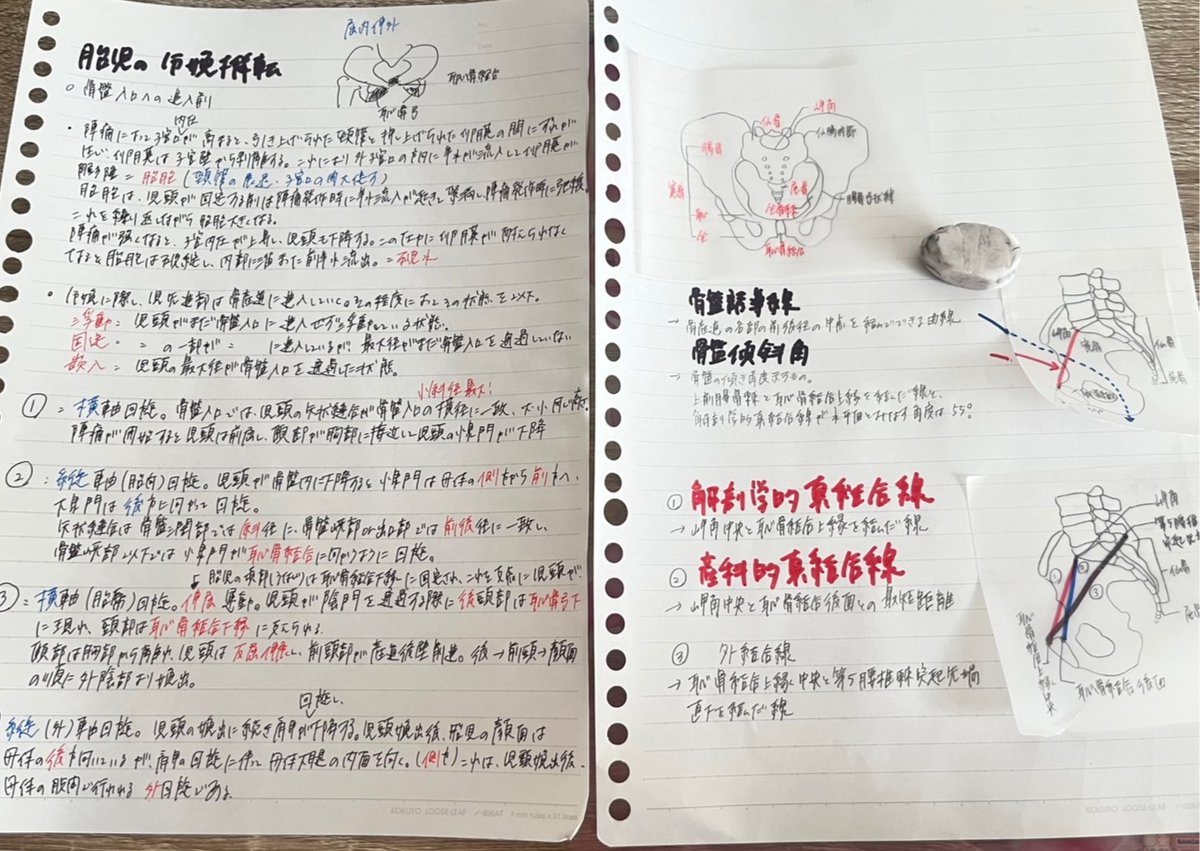 屈内伸外
胎児の 分娩機転
恥骨結合
恥骨弓
○ 骨盤入口への進入前
内圧
・陣痛により子宮口が高まると、引き上げられた頸管と押し上げられた卵膜の間にずれが
生じ、卵膜は子宮壁から剥離する。これにより 子宮口の方向に羊水が流入して卵膜が
膨隆 = 胎胞 (頸管の 子宮口の開大促す)
胎胞は、児頭が固定する前は陣痛発作時に羊水流入が起きて緊満し、陣痛発作時に弛緩。
これを繰り返しながら 胎胞大きくなる。
陣痛が強くなると、子宮内圧が上昇し、児頭も下降する。このたびに卵膜が耐えられなく
なると胎胞は破綻し、内部に溜まった前羊水流出。= 破水
○ 分娩に際し、児先進部は骨産道に進入していく。その程度によりその状態を以下。
浮動 = 児頭がまだ骨盤入口に進入せず浮動している状態。
固定 = 〃 の一部が 〃 に進入しているが、最大径がまだ骨盤入口を通過していない
嵌入 = 児頭の最大径が骨盤入口を通過した状態。
小斜径最大!
① = 横軸回旋。骨盤入口では、児頭の矢状縫合が骨盤入口の横径に一致、大・小同じ高さ
陣痛が開始すると児頭は前屈し、頤部が胸部に接近して児頭の小泉門が下降
② : 縦軸(胎向)回旋。児頭が骨盤内に下降すると 小泉門は母体の側方から前方へ、
大泉門は 後方に向かって 回旋。
矢状縫合は 骨盤濶部では斜径に、骨盤峡部・出口部では前後径に一致し、
骨盤峡部 以下では 小泉門が恥骨結合に向かうように 回旋。
胎児の項部(うなじ)は 恥骨結合下縁に固定され、これを支点に児頭が
③ : 横軸(胎勢)回旋。伸展運動。児頭が陰門を通過する際に後頭部は恥骨弓下
に現れ、頸部は恥骨結合下縁に支えられる
頤部は胸部から離れ、児頭は反屈伸展し、前頭部が産道後壁前進。後→前頭→顔面
の順に外陰部より娩出。
回旋し、
縦(外)軸回旋。児頭の娩出に続き肩甲が下降する。児頭娩出後、胎児の顔面は
母体の後方向いているが、肩甲の回旋に伴って母体大腿の内面を向く。(側方)これは、児頭娩出後、
母体の股間で行われる 外回旋である。
KOKUYO LOOSE-LEAF ノ-836AT 7 mm ruled×31 lines
岬角
仙骨
仙腸関節
腸骨
寛骨
尾骨
恥
坐
恥骨結合
骨盤誘導線
→ 骨産道の各部の前後径の中点を結んでできる曲線
骨盤傾斜角
→ 骨盤の傾き角度示すもの。
上前腸骨棘と恥骨結合上縁を結んだ線と、
解剖学的真結合線が水平面となす角度は55°
岬角
仙骨
尾骨
① 解剖学的真結合線
→ 岬角中央と恥骨結合上縁を結んだ線
② 産科的真結合線
→ 岬角中央と恥骨結合後面との最短距離
③ 外結合線
→ 恥骨結合上縁中央と第5腰椎棘突起先端
直下を結んだ線
岬角
第5腰椎
棘突起先
仙骨
①
②
③
恥骨結合上縁中央
恥骨結合後面
KOKUYO LOOSE-LEAF ノ-836AT 7 mm ruled×31 lines